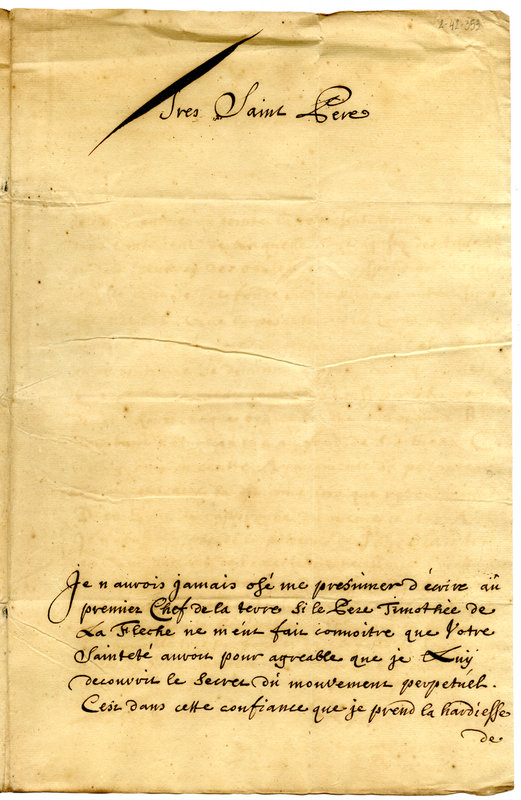 2-42-353
Tres Saint Pere
Je n aurois jamais osé me presumer d écrire aû
premier Chef de la terre si le Pere Timothée de
La Fleche ne m'eut fait connoitre que Votre
Sainteté auroit pour agreable que je Luÿ
decouvrit le Secret dû mouvement perpetuel.
C'est dans cette confiance que je prend la hardiesse
de